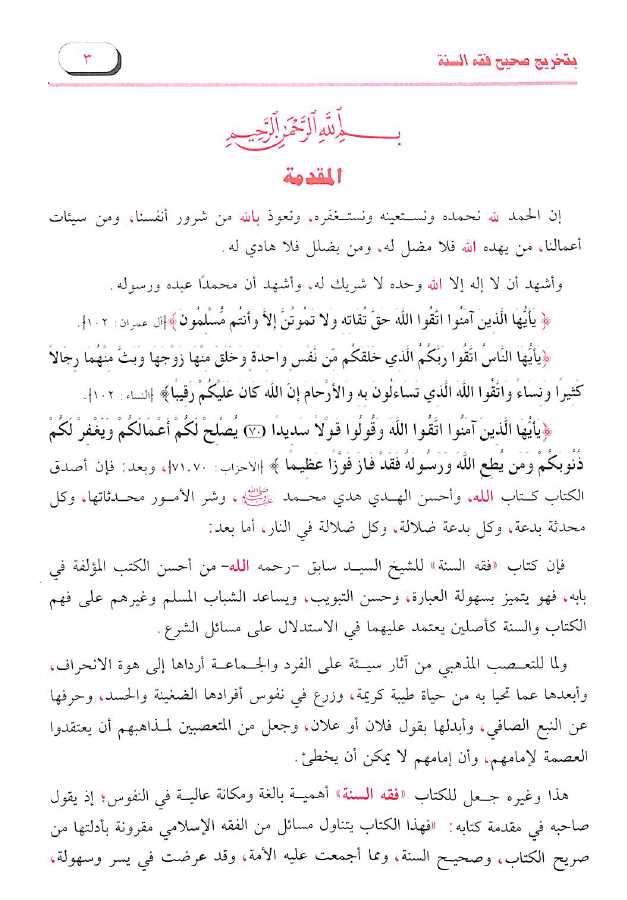 بتخريج صحيح فقه السنة
٣
بسم الله الرحمن الرحيم
المقدمة
إن الحمد لله نحمده ونستعينه ونستغفره، ونعوذ بالله من شرور أنفسنا، ومن سيئات
أعمالنا، من يهده الله فلا مضل له، ومن يضلل فلا هادي له.
وأشهد أن لا إله إلا الله وحده لا شريك له، وأشهد أن محمدًا عبده ورسوله.
﴿ يَأَيُّهَا الَّذِينَ آمَنُوا اتَّقُوا اللهَ حَقَّ تُقَاتِهِ ولا تَمُوتُنَّ إِلاَّ وأَنتُم مُّسْلِمُون ﴾ [آل عمران: ١٠٢].
﴿يَأَيُّهَا النَّاسُ اتَّقُوا رَبَّكُمُ الَّذِي خَلَقَكُم مِّن نَّفْسٍ وَاحِدَةٍ وَخَلَقَ مِنْهَا زَوْجَهَا وَبَثَّ مِنْهُمَا رِجَالاً
كَثِيرًا ونِسَاءً واتَّقُوا اللهَ الَّذِي تَسَاءَلُونَ بِهِ والأَرْحَامَ إِنَّ اللهَ كان عَلَيْكُمْ رَقِيبًا﴾ [النساء: ١٠٢].
﴿يَأَيُّهَا الَّذِينَ آمَنُوا اتَّقُوا اللهَ وَقُولُوا قَوْلاً سَدِيدًا (٧٠) يُصْلِحْ لَكُمْ أَعْمَالَكُمْ وَيَغْفِرْ لَكُمْ
ذُنُوبَكُمْ وَمَن يُطِعِ اللهَ وَرَسُولَهُ فَقَدْ فَازَ فَوْزًا عَظِيمًا ﴾ [الأحزاب: ٧١،٧٠]، وبعد: فإن أصدق
الكتاب كتاب الله، وأحسن الهدي هدي محمد ﷺ، وشر الأمور محدثاتها، وكل
محدثة بدعة، وكل بدعة ضلالة، وكل ضلالة في النار، أما بعد:
فإن كتاب «فقه السنة» للشيخ السيد سابق -رحمه الله- من أحسن الكتب المؤلفة في
بابه، فهو يتميز بسهولة العبارة، وحسن التبويب، ويساعد الشباب المسلم وغيرهم على فهم
الكتاب والسنة كأصلين يعتمد عليهما في الاستدلال على مسائل الشرع.
ولما للتعصب المذهبي من آثار سيئة على الفرد والجماعة أرداها إلى هوة الانحراف،
وأبعدها عما تحيا به من حياة طيبة كريمة، وزرع في نفوس أفرادها الضغينة والحسد، وحرفها
عن النبع الصافي، وأبدلها بقول فلان أو علان، وجعل من المتعصبين لمذاهبهم أن يعتقدوا
العصمة لإمامهم، وأن إمامهم لا يمكن أن يخطئ.
هذا وغيره جعل للكتاب «فقه السنة» أهمية بالغة ومكانة عالية في النفوس؛ إذ يقول
صاحبه في مقدمة كتابه: «فهذا الكتاب يتناول مسائل من الفقه الإسلامي مقرونة بأدلتها من
صريح الكتاب، وصحيح السنة، ومما أجمعت عليه الأمة، وقد عرضت في يسر وسهولة،